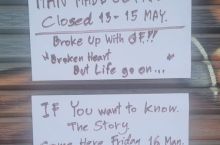 Closed 13-15 MAY.
Broke Up With GF!!
"Broken Heart
But Life go on...
IF You want to know.
The Story.
Come Here Friday 16 Man.